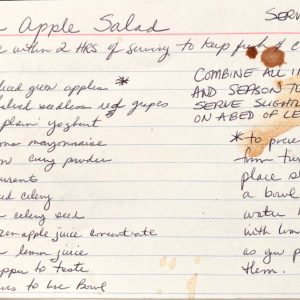 Apple Salad
SERV
within 2 HRS of serving to keep fresh &
green apples *
seedless red grapes
plain yoghurt
mayonnaise
curry powder
currants
celery
celery seed
apple juice concentrate
lemon juice
to taste
to line Bowl
COMBINE ALL I
AND SEASON TO
SERVE SLIGHT
ON A BED OF LE
* to pre
from tu
place s
a bowl
water
with lim
as you p
them.